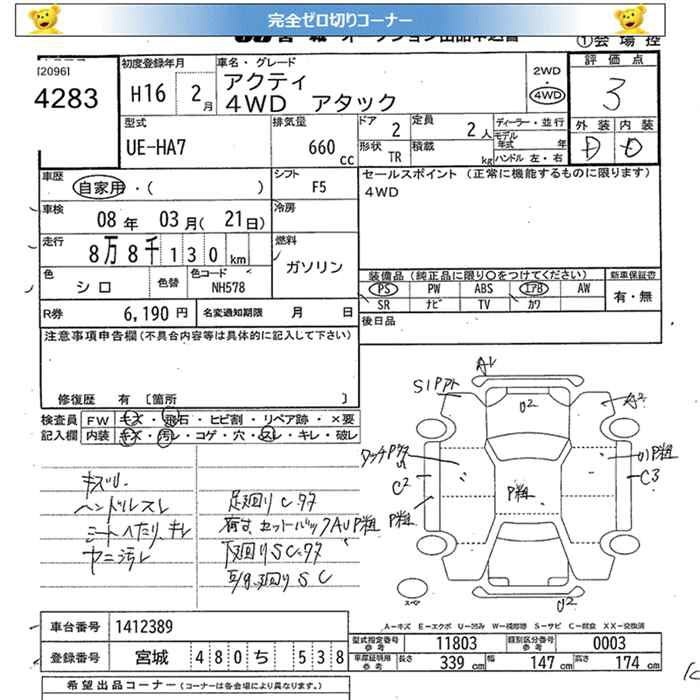 完全ゼロ切りコーナー
①会場控
[20961
4283
初度登録年月
H16 2月
車名・グレード
アクティ
4WD アタック
2WD
・
4WD
評価点
3
外装 内装
D D
型式
UE-HA7
排気量
660 cc
ドア 2
形状 TR
定員 2人
積載 kg
ディーラー・並行
モデル年式 年
ハンドル 左・右
車歴
自家用・( )
シフト
F5
車検
08年 03月(21日)
冷房
走行
8万8千130km
燃料
ガソリン
色
シロ
色替
色コード
NH578
R券 6,190円
名変通知期限 月 日
セールスポイント(正常に機能するものに限ります)
4WD
装備品(純正品に限り○をつけてください)
PS PW ABS エアB AW
SR ナビ TV カワ
新車保証書
有・無
後日品
注意事項申告欄(不具合内容等は具体的に記入して下さい)
修復歴 有 〔箇所 〕
検査員記入欄
FW キズ・飛石・ヒビ割・リペア跡・×要
内装 キズ・汚レ・コゲ・穴・スレ・キレ・破レ
ハンドルスレ
シートヘタリ、キレ
ヤニ汚レ
足廻りC.サタ
下廻りSC.サタ
A1
S1
U2
A2
C2
P粗
P粗
U1P粗
C3
スペア
U2
A-キズ E-エクボ U-凹み W-補修跡 S-サビ C-腐食 XX-交換済
車台番号 1412389
登録番号 宮城 480 ち 538
型式指定番号 参考 11803
類別区分番号 参考 0003
車庫証明用 参考 長さ 339cm 幅 147cm 高さ 174cm
希望出品コーナー(コーナーは各会場により異なります。)